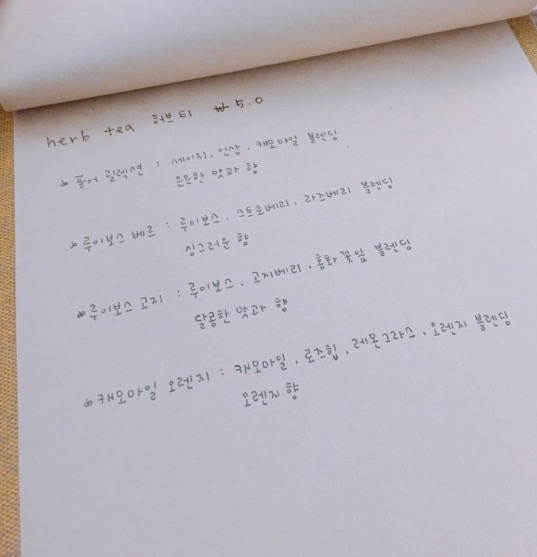 herb tea 허브티 ₩ 5.0
* 퓨어 릴렉션 : 세이지, 인삼, 캐모마일 블렌딩
은은한 맛과 향
* 루이보스 베르 : 루이보스, 스트로베리, 라즈베리 블렌딩
싱그러운 향
* 루이보스 고지 : 루이보스, 고지베리, 홍화꽃잎 블렌딩
달콤한 맛과 향
* 캐모마일 오렌지 : 캐모마일, 로즈힙, 레몬그라스, 오렌지 블렌딩
오렌지 향